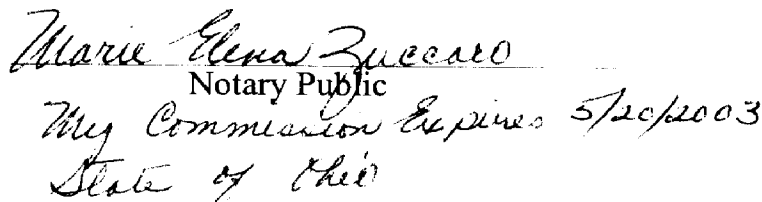 Marie Elena Zuccaro
Notary Public
My Commission Expires 5/20/2003
State of Ohio